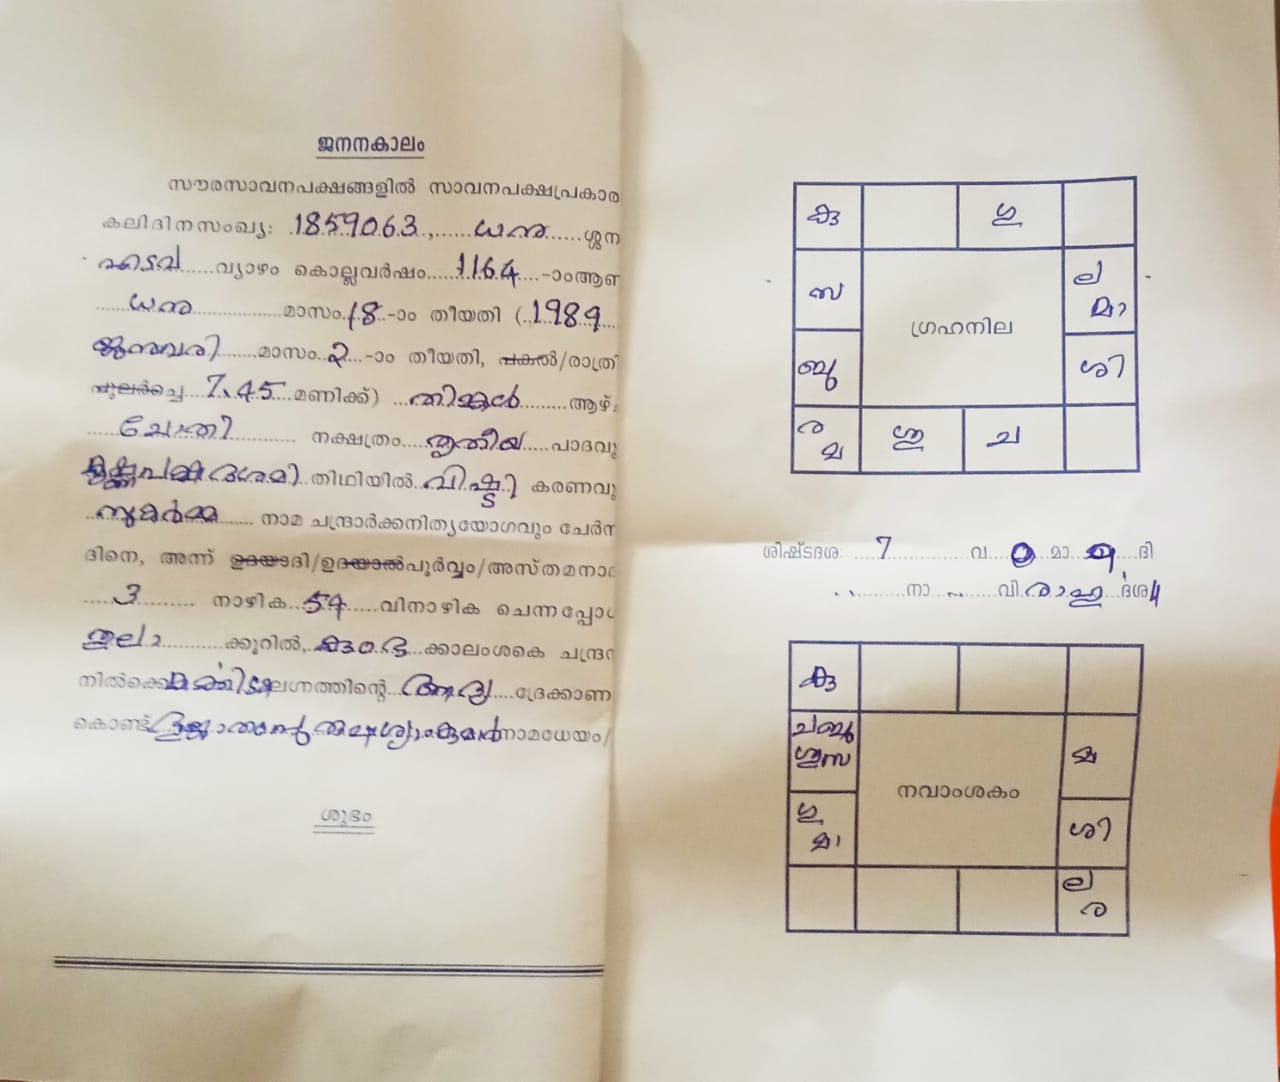 ജനനകാലം
സൗരസാവനപക്ഷങ്ങളിൽ സാവനപക്ഷപ്രകാര
കലിദിനസംഖ്യ: 1859063, ധനു ശ്ശന
ഇടവ വ്യാഴം കൊല്ലവർഷം 1164 -ാംആണ
ധനു മാസം 18 -ാം തീയതി (1989
ജനുവരി മാസം 2 -ാം തീയതി, പകൽ/രാത്രി
പുലർച്ചെ 7.45 മണിക്ക്) തിങ്കൾ ആഴ്ച
ചോതി നക്ഷത്രം തൃതീയ പാദവു
കൃഷ്ണപക്ഷ ദശമി തിഥിയിൽ വിഷ്ടി കരണവു
സുകർമ്മ നാമ ചന്ദ്രാർക്കനിത്യയോഗവും ചേർന
ദിനെ, അന്ന് ഉദയാദി/ഉദയാൽപൂർവ്വം/അസ്തമനാദ
3 നാഴിക 54 വിനാഴിക ചെന്നപ്പോൾ
തുലാ ക്കൂറിൽ, കുംഭ ക്കാലംശകെ ചന്ദ്ര
നിൽക്കെ ലഗ്നത്തിന്റെ ആദ്യ ദ്രേക്കാണ
കൊണ്ട് നാമധേയം/
ശുഭം
കു
ഗു
സ
ല
മാ
ഗ്രഹനില
ബു
ശി
ര
മ
ശു
ച
ശിഷ്ടദശ: 7 വ 0 മാ ദി
നാ വി രാഹു ദശ
കു
ചബു
ശുസ
മ
നവാംശകം
ഗു
മാ
ശി
ല
ര